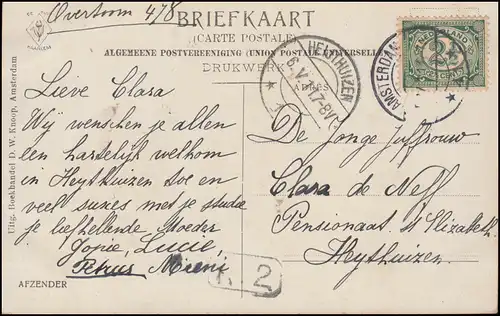 Overtoom 478
BRIEFKAART
(CARTE POSTALE)
ALGEMEENE POSTVEREENIGING (UNION POSTALE UNIVERSELLE)
DRUKWERK
HAARLEM
HEYTHUIZEN
AMSTERDAM
NEDERLAND
2½
CENT
Lieve Clara
Wij wenschen je allen
een hartelijk welkom
in Heythuizen toe en
veel succes met je studie
je liefhellende Moeder
Jopie, Lucie,
Petrus Mieni
AFZENDER
Uitg. Boekhandel D. W. Knoop, Amsterdam
De Jonge Juffrouw
Clara de Nell
Pensionaat St Elizabeth
Heythuizen
2